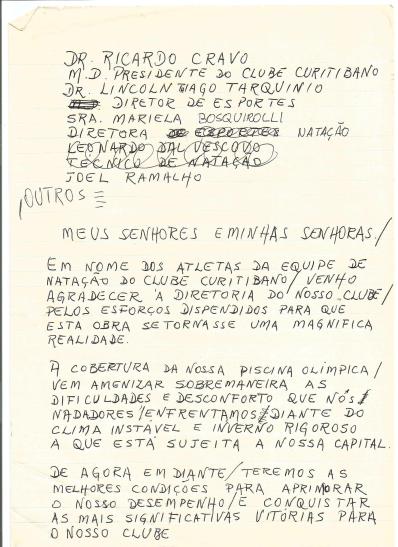 DR. RICARDO CRAVO
M.D. PRESIDENTE DO CLUBE CURITIBANO
DR. LINCOLN TIAGO TARQUINIO
DIRETOR DE ESPORTES
SRA. MARIELA BOSQUIROLLI
DIRETORA DE ESPORTES NATAÇÃO
LEONARDO DAL VESCOVO
TECNICO DE NATAÇÃO
JOEL RAMALHO
OUTROS
MEUS SENHORES E MINHAS SENHORAS/
EM NOME DOS ATLETAS DA EQUIPE DE
NATAÇÃO DO CLUBE CURITIBANO/ VENHO
AGRADECER À DIRETORIA DO NOSSO CLUBE/
PELOS ESFORÇOS DISPENDIDOS PARA QUE
ESTA OBRA SE TORNASSE UMA MAGNIFICA
REALIDADE.
A COBERTURA DA NOSSA PISCINA OLÍMPICA/
VEM AMENIZAR SOBREMANEIRA AS
DIFICULDADES E DESCONFORTO QUE NÓS
NADADORES/ ENFRENTAMOS DIANTE DO
CLIMA INSTÁVEL E INVERNO RIGOROSO
A QUE ESTÁ SUJEITA A NOSSA CAPITAL.
DE AGORA EM DIANTE/ TEREMOS AS
MELHORES CONDIÇÕES PARA APRIMORAR
O NOSSO DESEMPENHO/ E CONQUISTAR
AS MAIS SIGNIFICATIVAS VITÓRIAS PARA
O NOSSO CLUBE